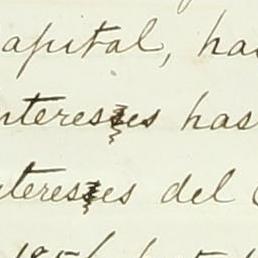 apital, ha
nteresses has
nteresses del